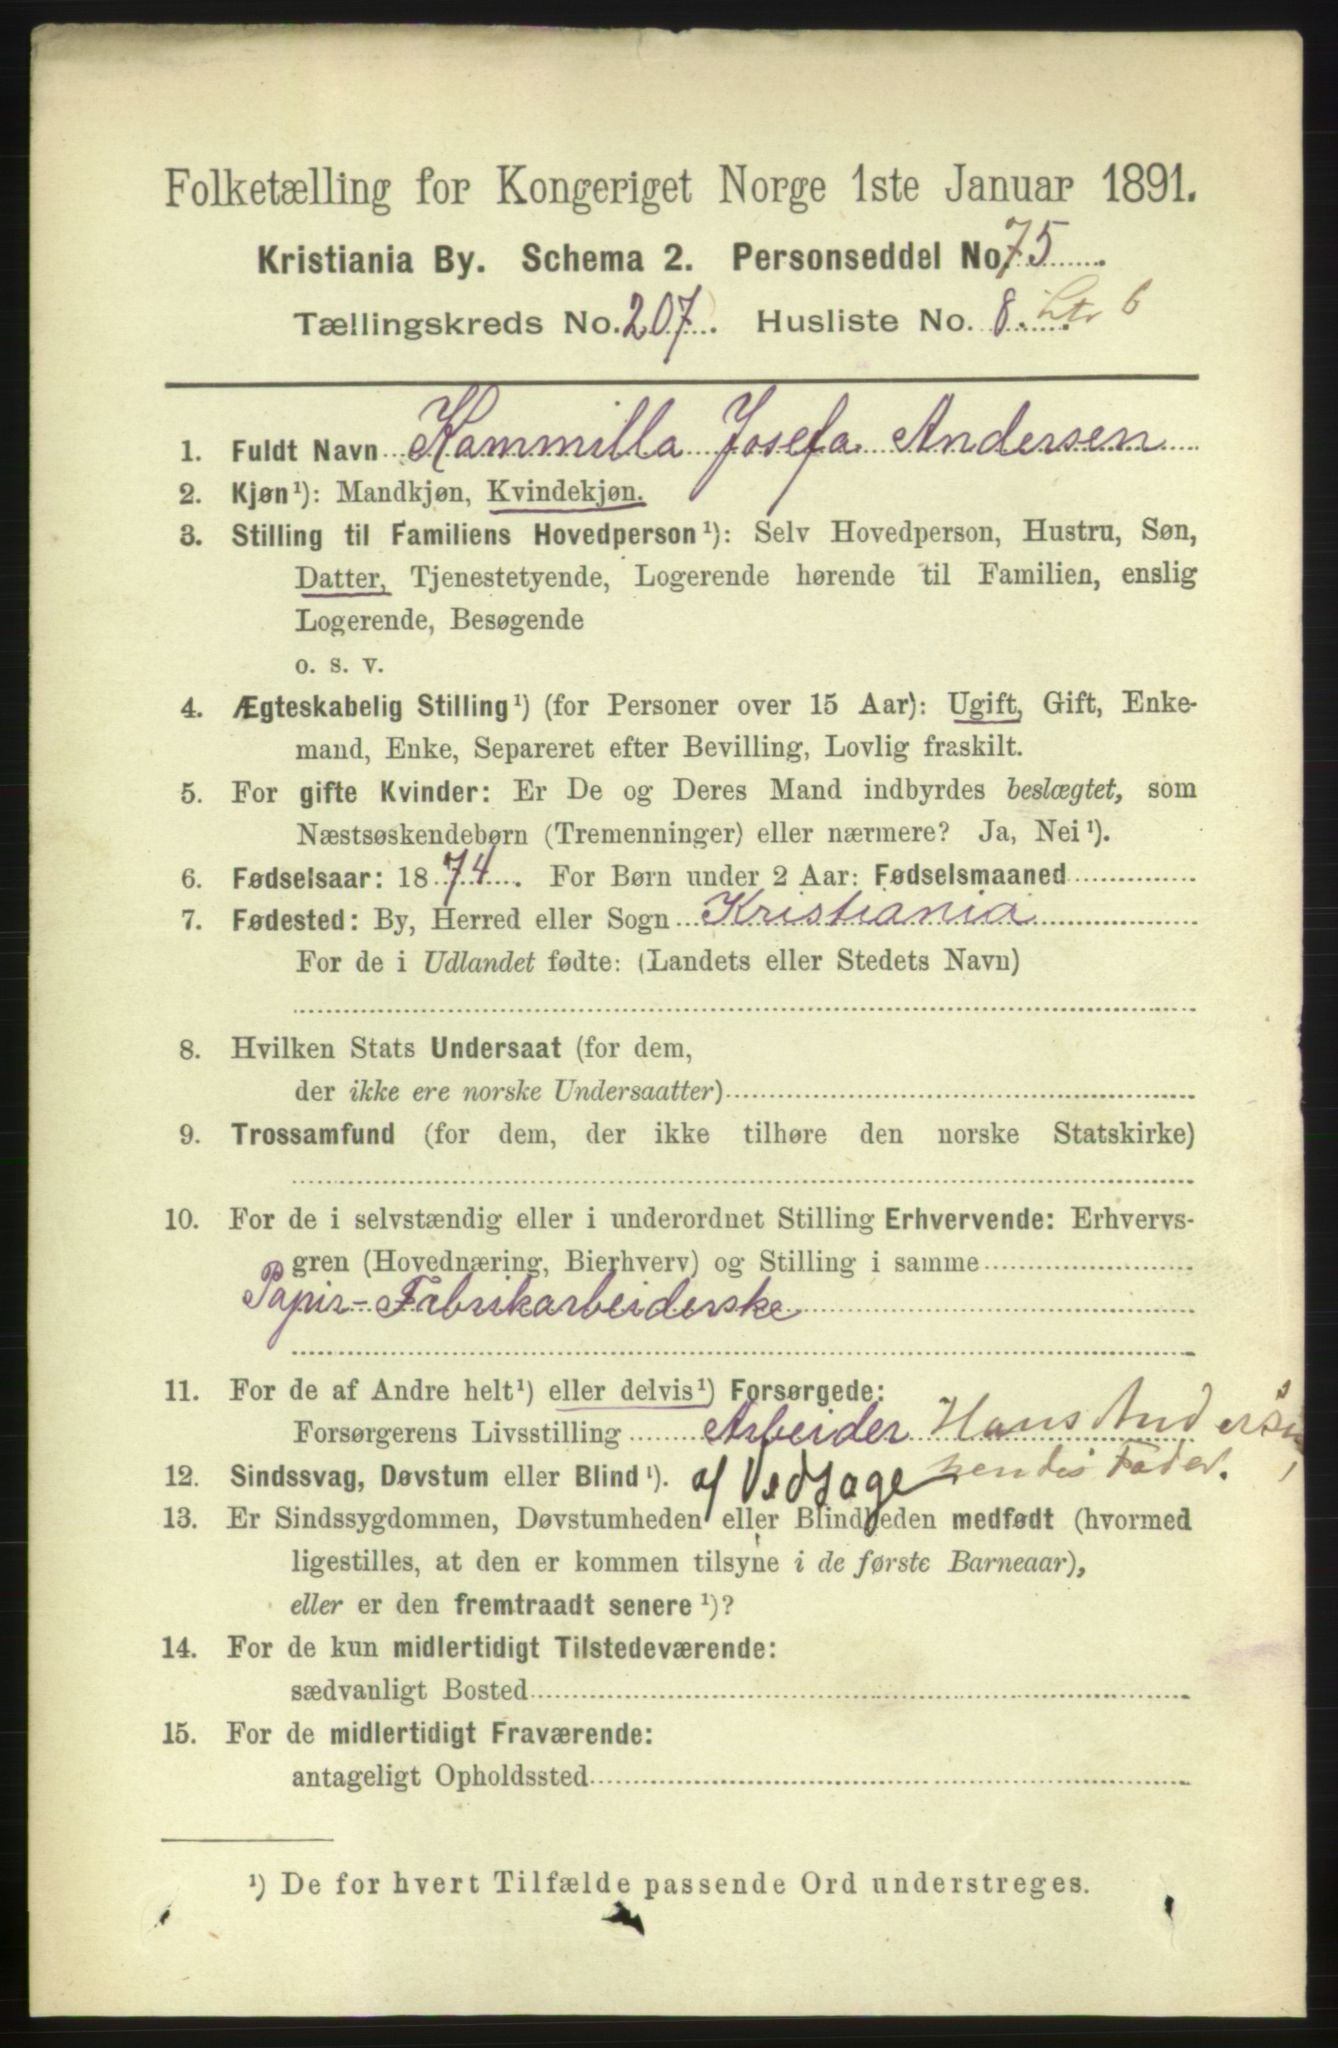 Folketælling for Kongeriget Norge 1ste Januar 1891.
Kristiania By. Schema 2. Personseddel No. 75
Tællingskreds No. 207. Husliste No. 8. Ltr 6
1. Fuldt Navn Kammilla Josefa Andersen
2. Kjøn¹): Mandkjøn, Kvindekjøn.
3. Stilling til Familiens Hovedperson¹): Selv Hovedperson, Hustru, Søn,
Datter, Tjenestetyende, Logerende hørende til Familien, enslig
Logerende, Besøgende
o. s. v.
4. Ægteskabelig Stilling¹) (for Personer over 15 Aar): Ugift, Gift, Enke-
mand, Enke, Separeret efter Bevilling, Lovlig fraskilt.
5. For gifte Kvinder: Er De og Deres Mand indbyrdes beslægtet, som
Næstsøskendebørn (Tremenninger) eller nærmere? Ja, Nei¹).
6. Fødselsaar: 1874. For Børn under 2 Aar: Fødselsmaaned
7. Fødested: By, Herred eller Sogn Kristiania
For de i Udlandet fødte: (Landets eller Stedets Navn)
8. Hvilken Stats Undersaat (for dem,
der ikke ere norske Undersaatter)
9. Trossamfund (for dem, der ikke tilhøre den norske Statskirke)
10. For de i selvstændig eller i underordnet Stilling Erhvervende: Erhvervs-
gren (Hovednæring, Bierhverv) og Stilling i samme
Papir-Fabrikarbeiderske
11. For de af Andre helt¹) eller delvis¹) Forsørgede:
Forsørgerens Livsstilling Arbeider Hans Andersen,
12. Sindssvag, Døvstum eller Blind¹). af Vedsage hendes Fader.
13. Er Sindssygdommen, Døvstumheden eller Blindheden medfødt (hvormed
ligestilles, at den er kommen tilsyne i de første Barneaar),
eller er den fremtraadt senere¹)?
14. For de kun midlertidigt Tilstedeværende:
sædvanligt Bosted
15. For de midlertidigt Fraværende:
antageligt Opholdssted
¹) De for hvert Tilfælde passende Ord understreges.